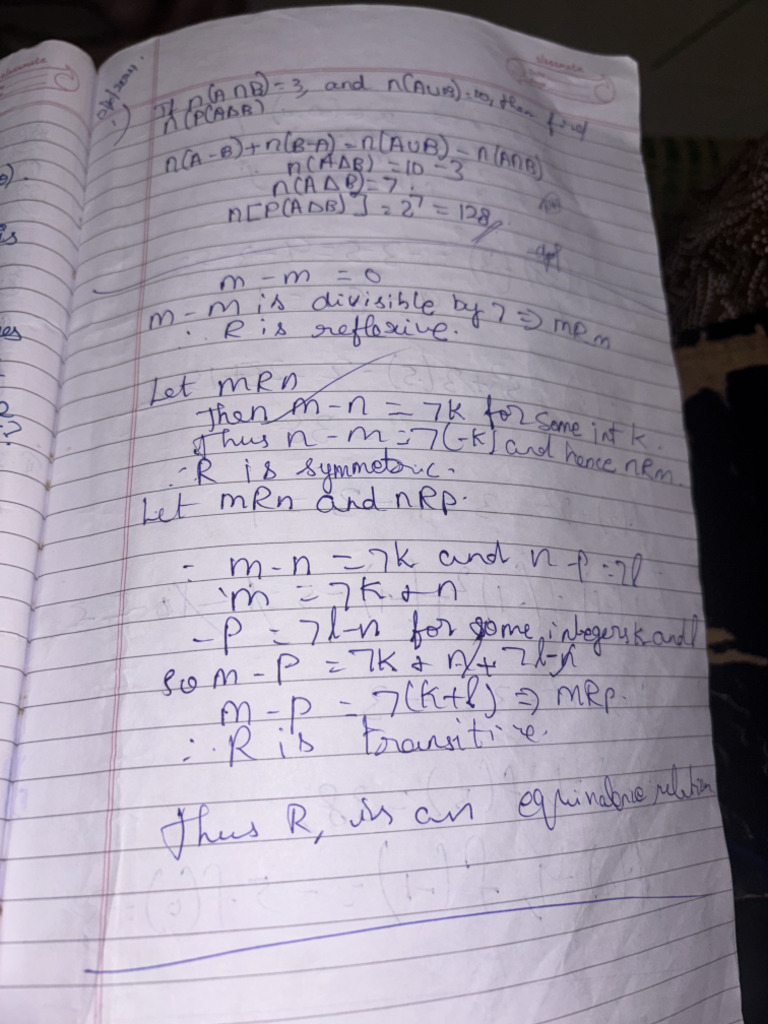 classmate
If n(A∩B) = 3, and n(A∪B) = 10, then find
n(P(AΔB)
n(A-B) + n(B-A) = n(A∪B) - n(A∩B)
n(AΔB) = 10 - 3
n(AΔB) = 7.
n[P(AΔB)] = 2⁷ = 128
m - m = 0
m - m is divisible by 7 ⇒ mRm
∴ R is reflexive.
Let mRn
Then m - n = 7k for some int k.
Thus n - m = 7(-k) and hence nRm.
∴ R is symmetric.
Let mRn and nRp.
∴ m - n = 7k and n - p = 7l
m = 7k + n
-p = 7l - n for some integers k and l
so m - p = 7k + n + 7l - n
m - p = 7(k + l) ⇒ mRp.
∴ R is transitive.
Thus R, is an equivalence relation